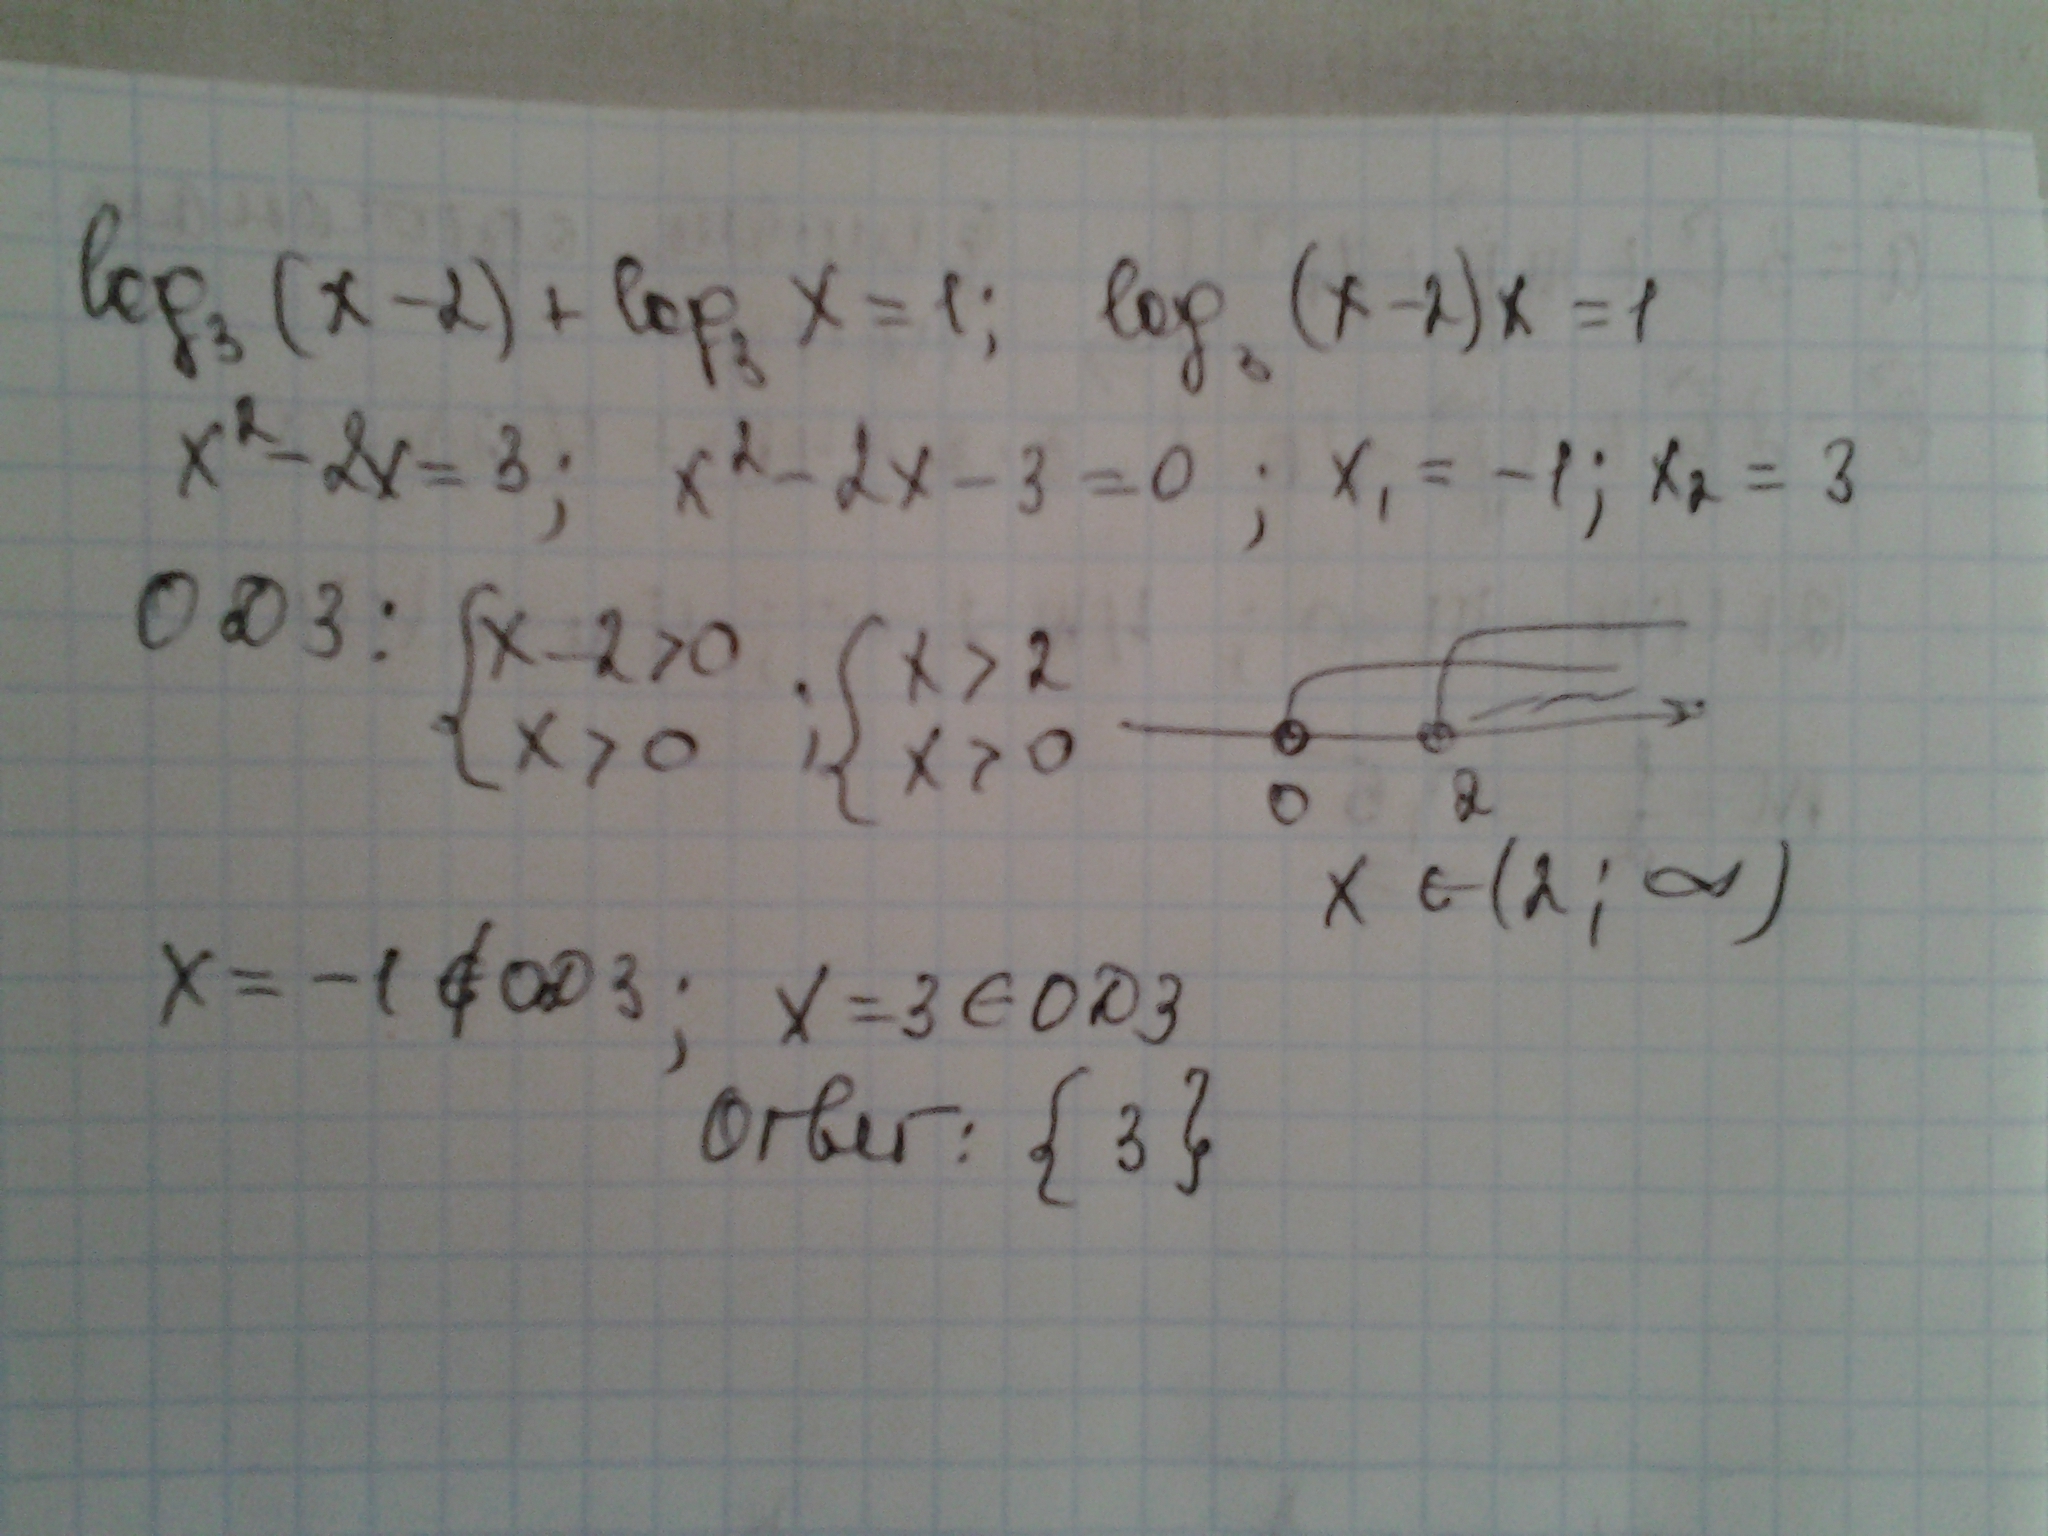 log₃ (x-2) + log₃ x = 1; log₃ (x-2)x = 1
x² - 2x = 3; x² - 2x - 3 = 0; x₁ = -1; x₂ = 3
ОДЗ: { x-2>0 ; { x>2
x>0 x>0
0 2
x ∈ (2; ∞)
x = -1 ∉ ОДЗ; x = 3 ∈ ОДЗ
Ответ: {3}